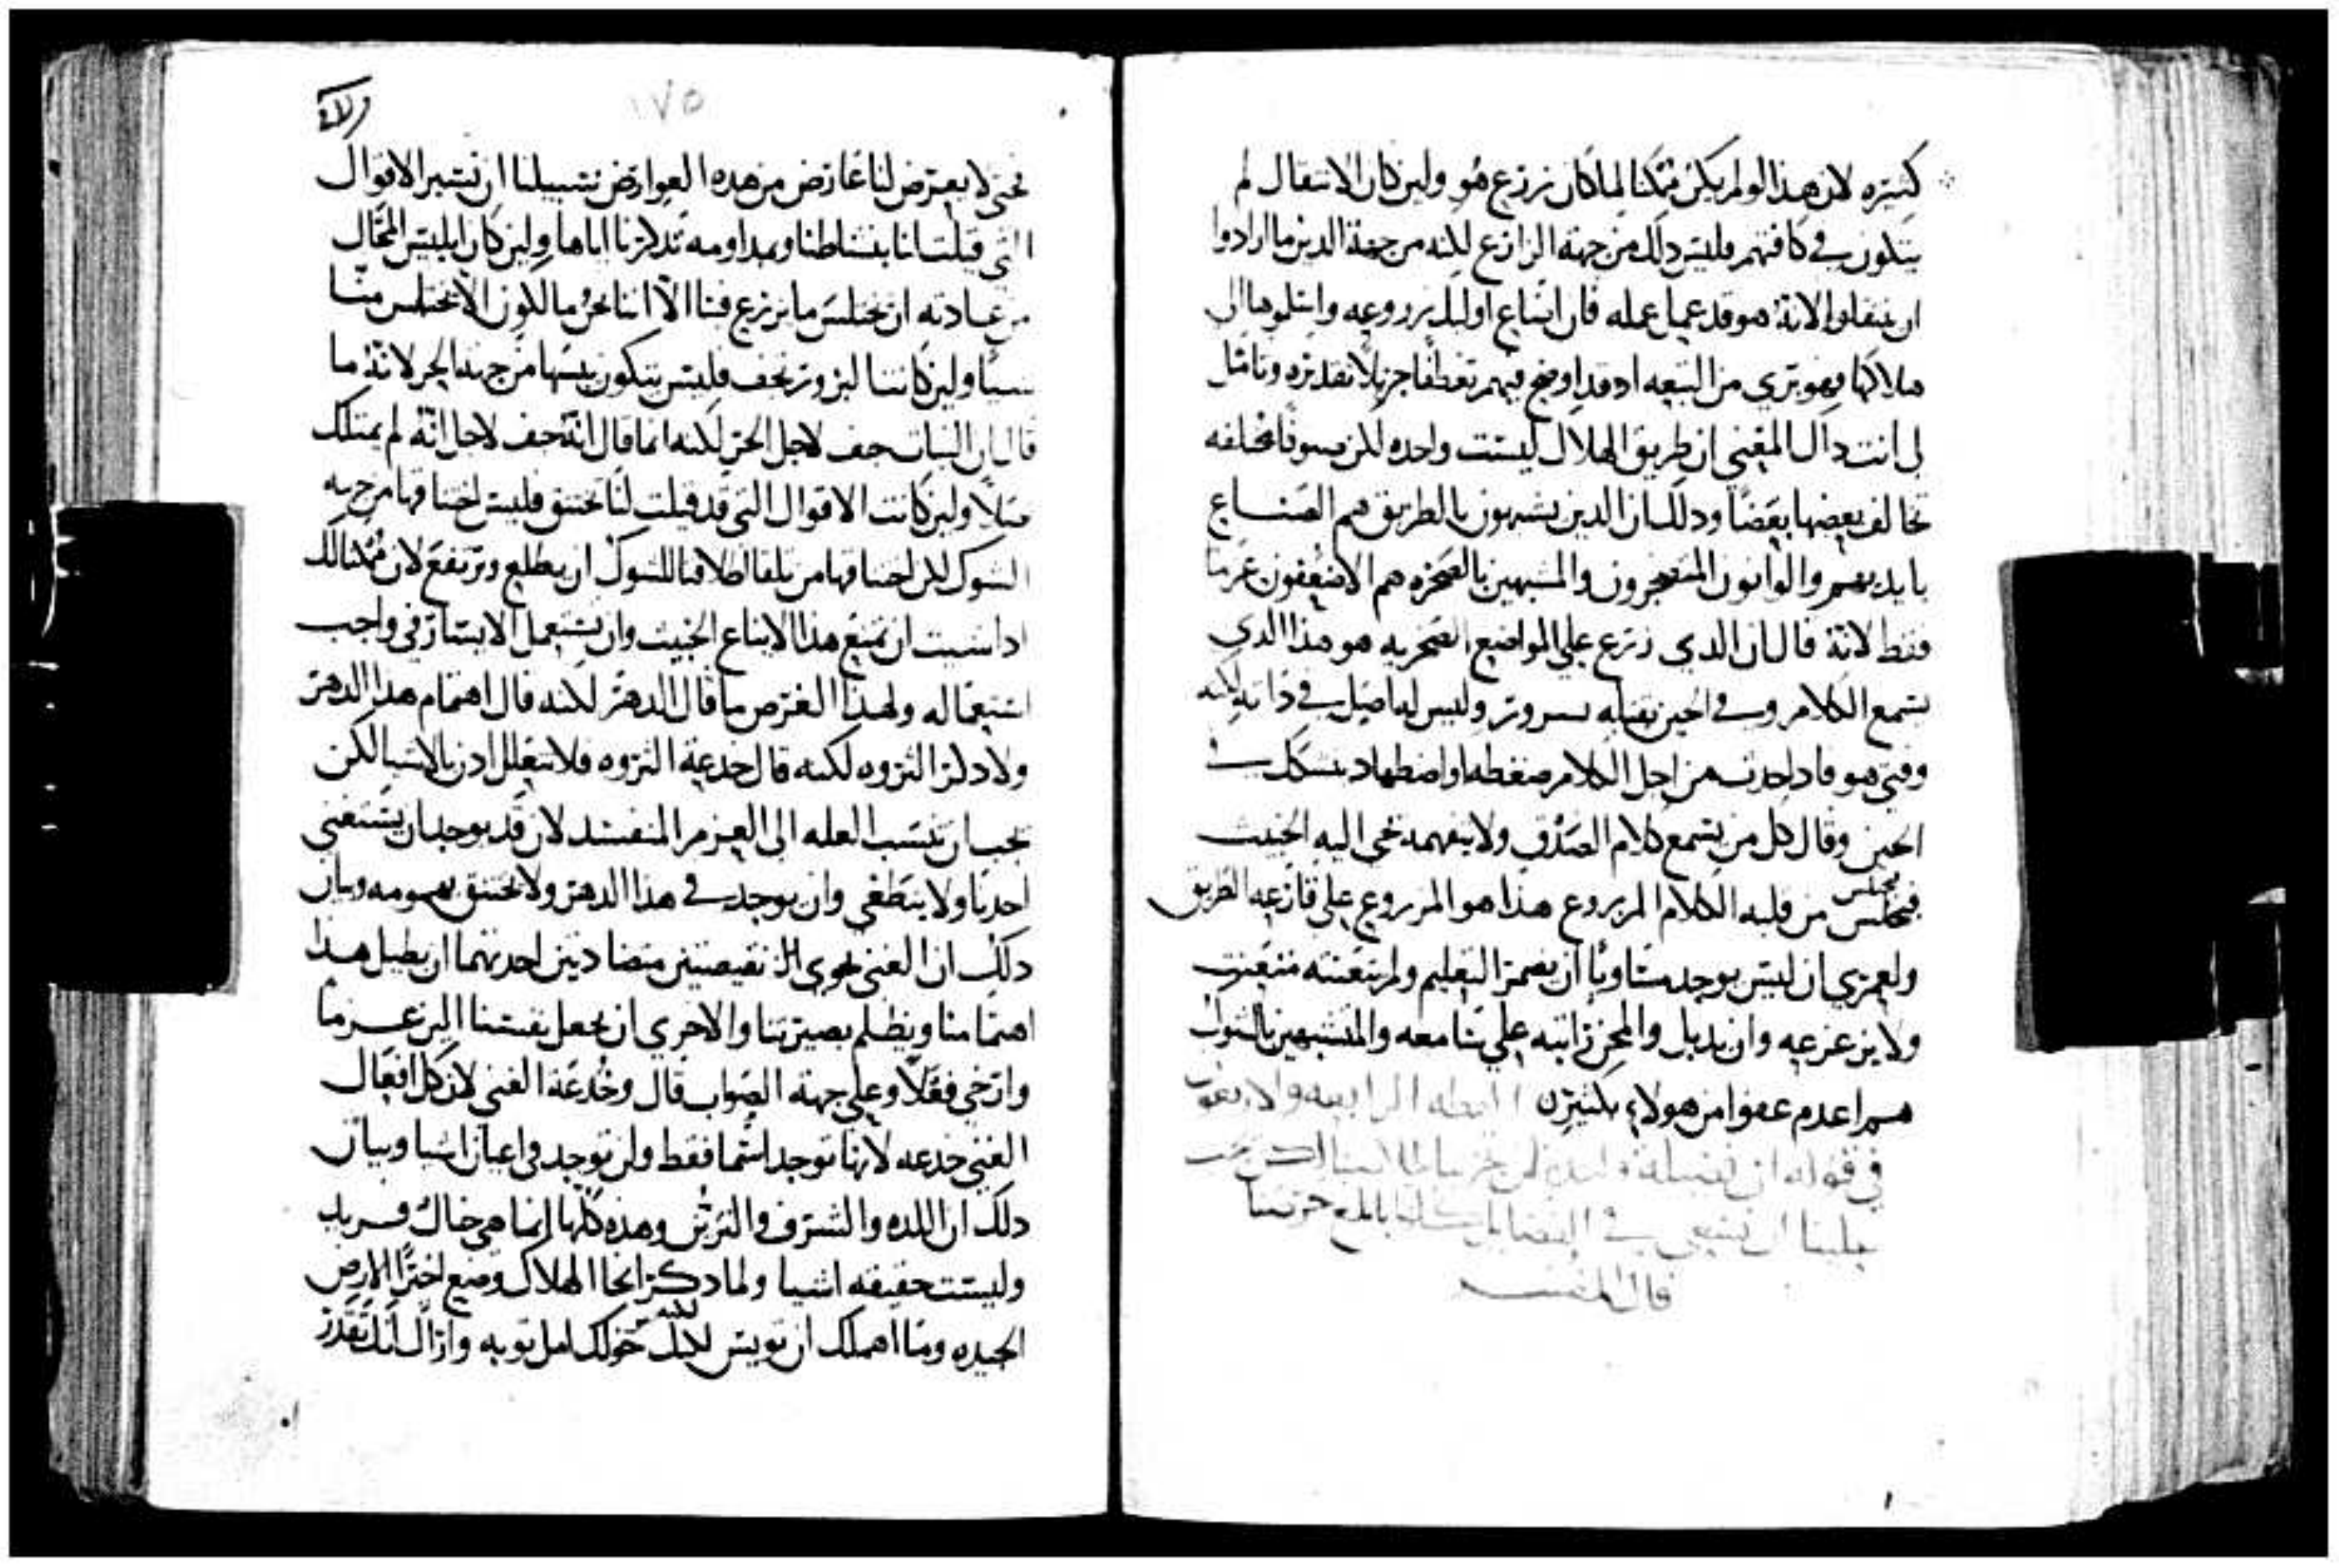 كثيره لان هذا لو لم يكن ممكنا لما كان زرع هو ولين كان الانتقال لم
يتكون في كافتهم فليس دلك من جهة الزارع لكنه من جهة الدين ما ارادوا
ان ينتقلوا لانة هو قد عمل عمله فان اضاع اوليك زروعه وابتلوها الى
هلاكها فهو بري من التبعه اد قد اوضح فيهم تعطفا جزيلا تقديره وتامل
لي انت داك المعني ان طريق الهلاك ليست واحده لكن صنوفا مختلفه
تخالف بعضها بعضا ودلك ان الدين يشبهون بالطريق هم الصناع
بايديهم والوانون المتضجرون والمشبهين بالصخره هم الاضعفون عزما
فقط لانة قال ان الدي زرع علي المواضع الصخريه هو هذا الدي
يسمع الكلام وفي الحين يقبله بسرور وليس له اصل في ذاته لكنه
وقتي هو فاد احدث من اجل الكلام ضغطه او اضطهاد يتشكك في
الحين وقال كل من يسمع كلام الصدق ولا يتفهمه يجي اليه الخبيث
يختلس
فيختلس من قلبه الكلام المزروع هذا هو المزروع علي قارعه الطريق
ولعمري ان ليس يوجد متساويا ان يضمر التعليم ولم يتعنته متعنت
ولا يزعزعه وان يدبل والمحن راتبه علي سامعه والمشبهين بالشوك
هم اعدم عفوا من هولاء بكثير العظه الرابعه والاربعون
في قوله ان
علينا ان في الفضايل
قال المفسر
١٧٥
حتي لا يعترض لنا عارض من هده العوارض سبيلنا ان نستر الاقوال
التي قيلت لنا بنشاطنا وبمداومه تدكرنا اياها ولين كان ابليس المحال
من عادته ان يختلس ما يزرع فينا الا اننا نحن مالكون الا يختلس منا
شيا ولين كانت البزور تجف فليس يتكون يبسها من جهة الحر لانه ما
قال ان النبات جف لاجل الحر لكنه انما قال انة جف لاجل انه لم يمتلك
اصلا ولين كانت الاقوال التي قد قيلت لنا تختنق فليس اختناقها من جهه
الشوك لكن اختناقها من تلقا اطلاقنا للشوك ان يطلع ويرتفع لان ممكنا لك
ادا شيت ان تمنع هذا الايناع الخبيث وان تستعمل الايسار في واجب
استعماله ولهذا الغرض ما قال الدهر لكنه قال اهتمام هذا الدهر
ولا دكر الثروه لكنه قال خدعة الثروه فلا نتعلل ادن بالاشيا لكن
يجب ان ننسب العله الى العزم المنفسد لان قد يوجد ان يستغني
احدنا ولا ينطغي وان يوجد في هذا الدهر ولا يختنق بهمومه وبيان
دلك ان الغني يحوي نقيصتين متضادتين احديهما ان يطيل هذا
اهتمامنا ويظلم بصيرتنا والاخري ان يجعل نفسنا الين عزما
وارخي فعلا وعلي جهة الصواب قال وخدعة الغني لان كل افعال
الغني خدعه لانها توجد اسما فقط ولن توجد في اعيان اشيا وبيان
دلك ان اللده والشرف والترتس وهذه كلها انما هي خيال فريد
وليست حقيقه اشيا ولما دكر انحا الهلاك وضع اخيرا الارض
لكنه
الجيده وما اهملك ان تويس خولك امل توبه واراك انك تقدر